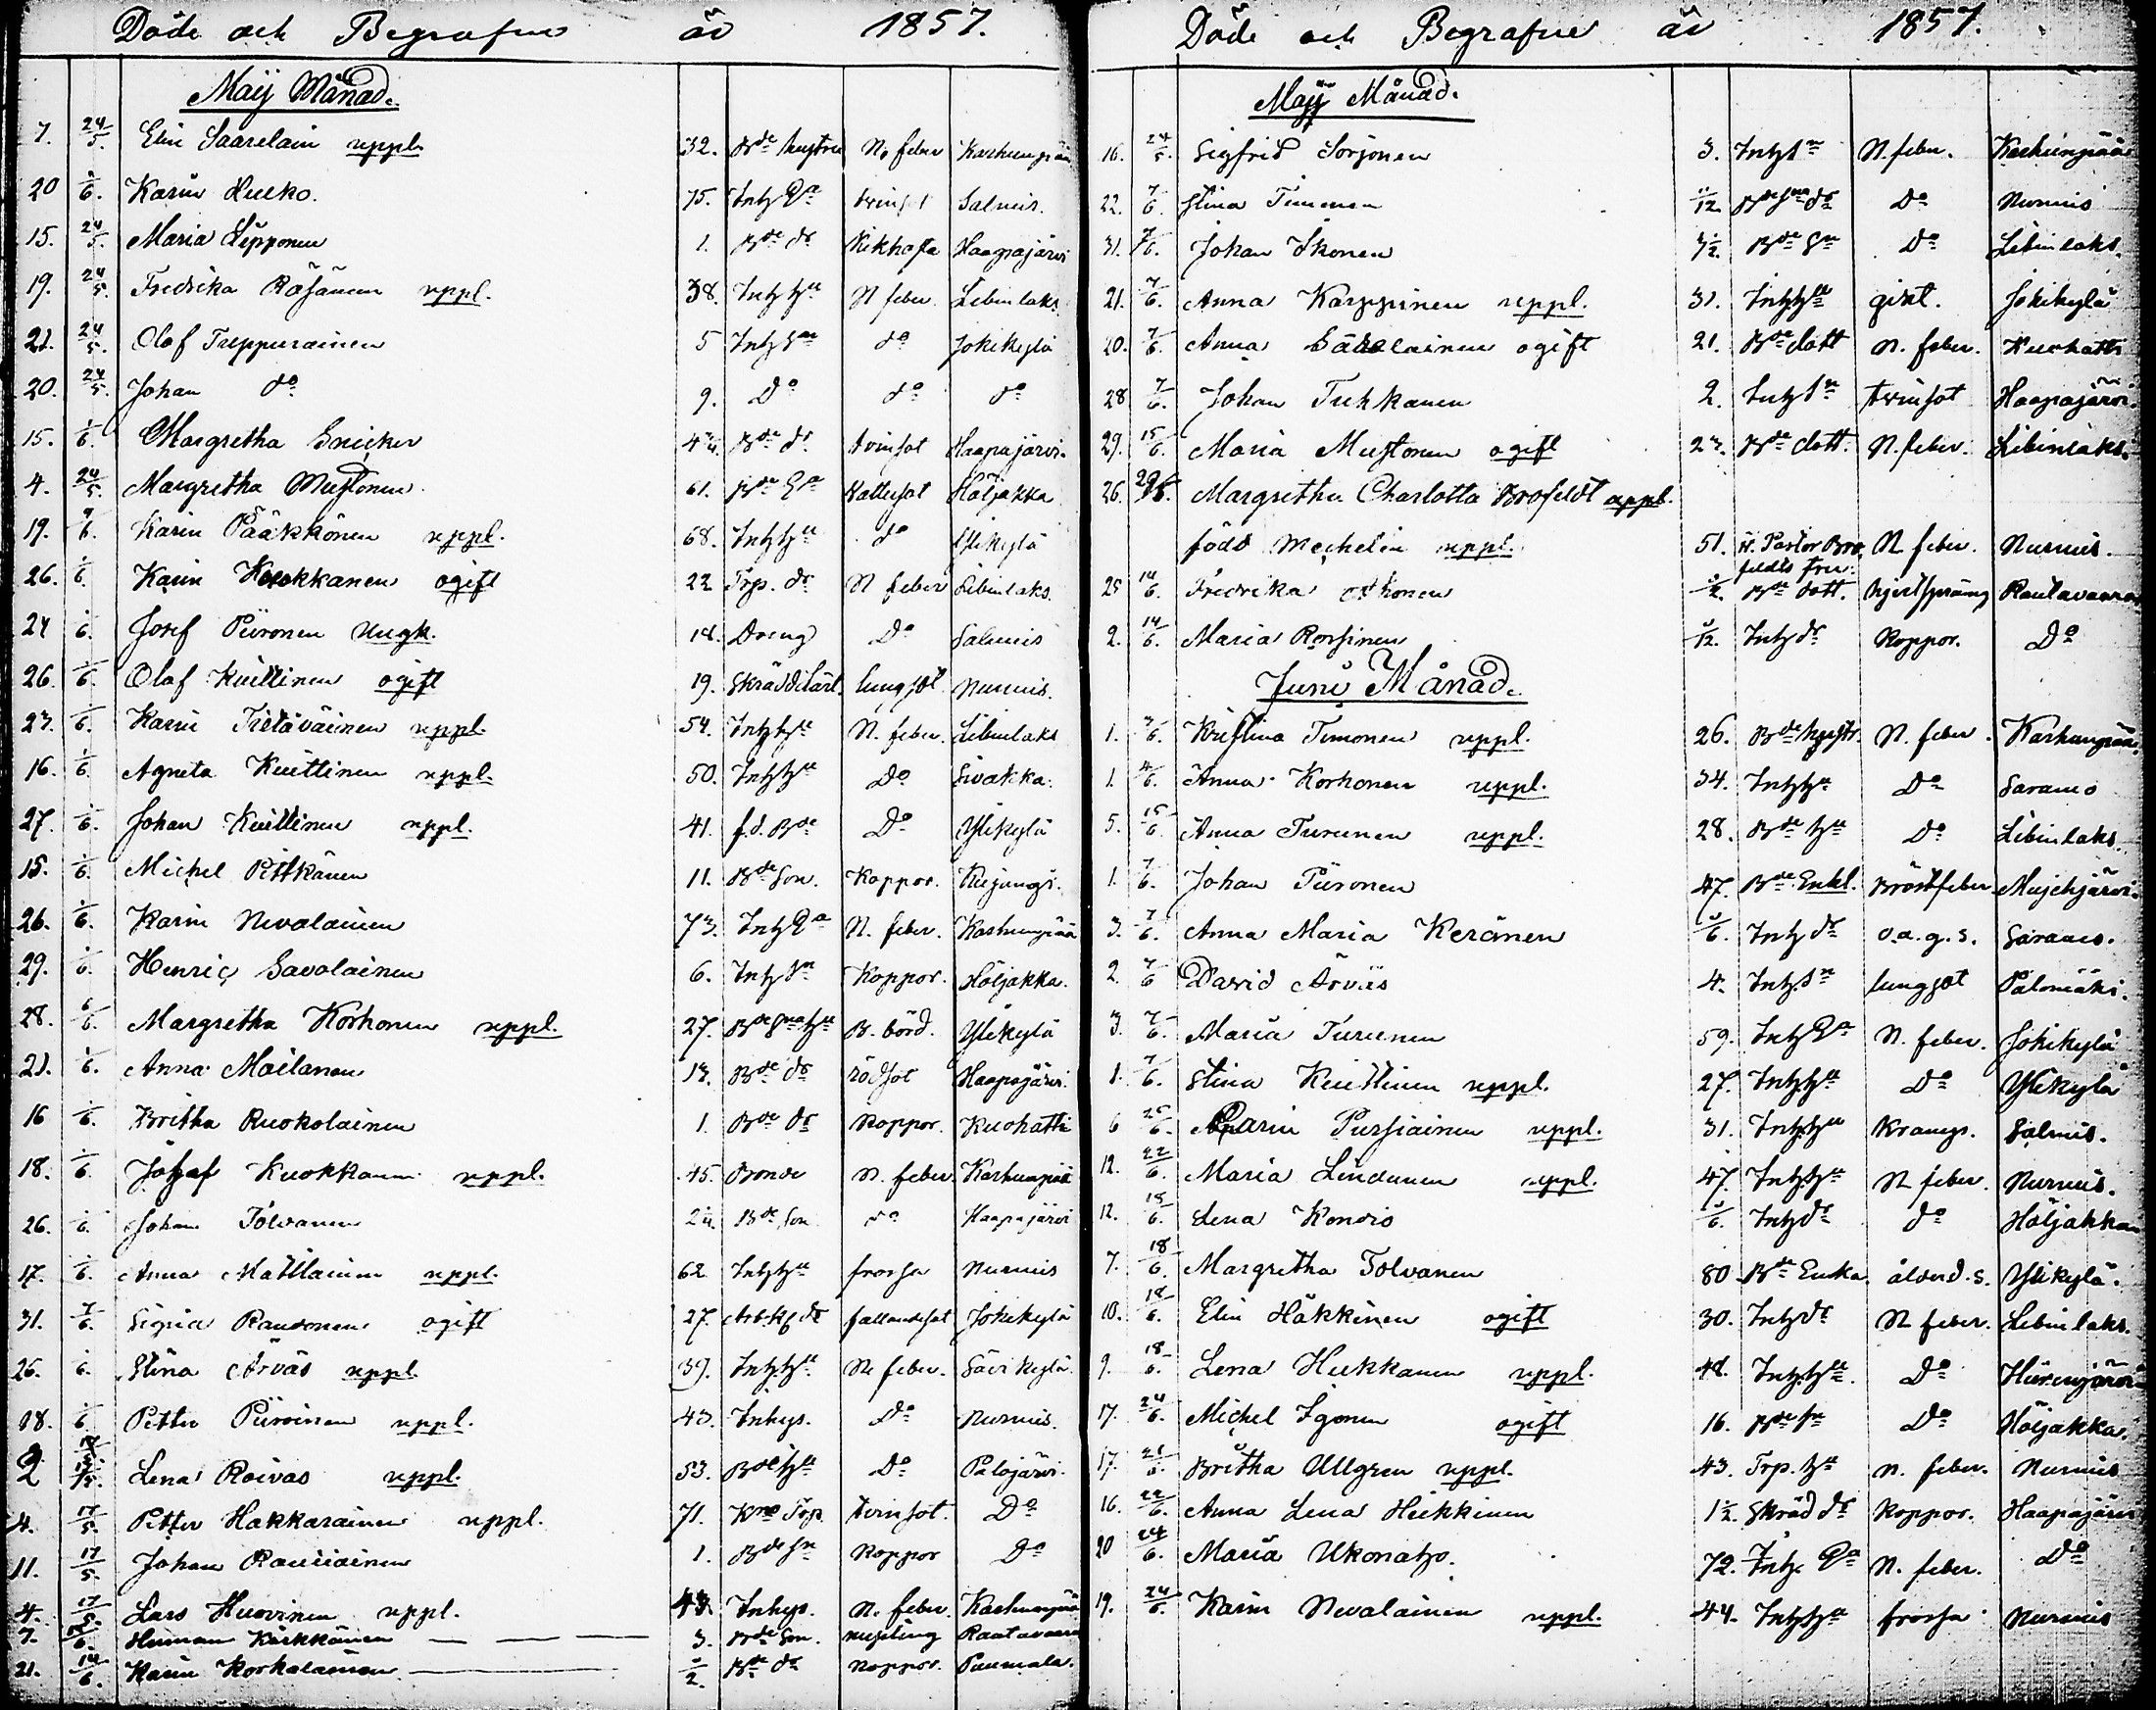 Döde och Begrafne år 1857.
Maij Månad.
7. 24/5. Elin Saarelain uppl. 32. Bde hustru N. feber Karhunpää
20 1/6. Karin Kulko. 75. Inhs Ea tvinsot Salmis.
15. 24/5. Maria Lipponen 1. Bde dr Kikhosta Haapajärvi
19. 24/5. Fredrika Räsänen uppl. 38. Inhs hu N feber. Libinlaks
21. 24/5. Olof Treppurainen 5 Inhs sn do Jokikylä
20. 24/5. Johan do 9. Do do do
15. 1/6. Margretha Snicker Bde dr tvinsot Haapajärvi.
4. 24/5. Margretha Mustonen. 61. Bde Ea Vattusot Höljäkkä
19. Karin Pääkkönen uppl. 68. Inhs hu do Ylikylä
26. 1/6. Karin Kuokkanen ogift 22 Trp. dr N feber Libinlaks.
24 1/6. Josef Piironen Ungk. 18. Dreng Do Salmis
26. 1/6. Olof Kuittinen ogift 19. Skräddilärl. lungsot Nurmis.
23. 1/6. Karin Tietäväinen uppl. 54. Inhs hu N. feber. Libinlaks
16. 1/6. Agneta Kuittinen uppl. 50. Inhs hu Do Sivakka.
27. 1/6. Johan Kuittinen uppl. 41. f.d. Bde Do Ylikylä
15. 1/6. Michel Pitkänen 11. Bde Son. Koppor. Kujangi.
26. 1/6. Karin Nevalainen 73. Inhs Ea N. feber. Karhunpää
29. 1/6. Henric Savolainen 6. Inhs sn Koppor. Höljäkkä.
28. 1/6. Margretha Korhonen uppl. 27. Bde sna hu B. börd. Ylikylä
21. 1/6. Anna Mailanen 13. Bde dr rödsot Haapajärvi.
16 1/6. Britha Ruokolainen 1. Bde dr Koppor. Kuohatti
18. 1/6. Johan Kuokkanen uppl. 45. Bonde N. feber. Karhunpää
26. 1/6. Johan Tolvanen Bde Son do Haapajärvi
17. 1/6. Anna Matilainen uppl. 62 Inhs hu frossa Nurmis
31. 7/6. Sigrid Rautonen ogift 27. dr fallandesot Jokikylä
26. 1/6. Stina Arväs uppl. 39. Inhs hu N. feber. Savikylä.
28. 1/6. Petter Piiroinen uppl. 43. Inhys. Do Nurmis.
2 17/5. Lena Roivas uppl. 53. Bde hu Do Palojärvi.
4. 17/5. Petter Hakkarainen uppl. 71. Kro Trp. tvinsot. Do
11. 17/5. Johan Rautiainen 1. Bde sn Koppor Do
4. 17/5. Lars Huovinen uppl. 43. Inhys. N. feber. Karhunpää
7. Herman Kärkkäinen 3. Bde Son. Messling Rautavaara
21. 14/6. Karin Korkalainen 1/2. Bde dr Koppor. Puumala.
Döde och Begrafne år 1857.
Maij Månad.
16. 24/5. Sigfrid Sorjonen 3. Inhs sn N. feber. Karhunpää
22. 7/6. Stina Timonen Bde sna dr Do Nurmis
31. 7/6. Johan Ikonen 3 1/2. Bde sn Do Libinlaks.
21. 7/6. Anna Karppinen uppl. 31. Inhs hu gikt. Jokikylä
20. 7/6. Anna Savolainen ogift 21. Bde dott N. feber. Kuohatti
28 7/6. Johan Tuhkanen 2. Inhs sn tvinsot Haapajärvi.
29. 15/6. Maria Mustonen ogift 23. Bde dott. N. feber. Libinlaks.
26. Margretha Charlotta Brofeldt uppl.
född Mechelin uppl. 51. v. Pastor Brofeldts fru. N. feber. Nurmis.
25 14/6. Fredrika Ahonen 1/2. Bde dott. hjertspräng Rautavaara
2. 14/6. Maria Rossinen Inhs dr Koppor. Do
Juni Månad.
1. 7/6. Kristina Timonen uppl. 26. Bde hustr. N. feber. Karhunpää
1. 7/6. Anna Korhonen uppl. 34. Inhs hu Do Saramo
5. 15/6. Anna Turunen uppl. 28. Bde hu Do Libinlaks.
1. 7/6. Johan Piironen 47. Bde Enkl. Bröstfeber Mujejärvi.
3. 7/6. Anna Maria Keränen Inhs dr o.a.g.s. Saramo.
2. 7/6 David Arvas 4. Inhs sn lungsot Palomäki.
3. 7/6. Maria Turunen 59. Inhs Ea N. feber. Jokikylä
1. 7/6. Stina Kuittinen uppl. 27. Inhs hu Do Ylikylä
6 25/6. Karin Pursiainen uppl. 31. Inhs hu Kramp. Salmis.
12. 22/6. Maria Lindunen uppl. 47. Inhs hu N. feber. Nurmis.
12. 18/6. Lena Kondio Inhs dr do Höljäkkä
7. 18/6. Margretha Tolvanen 80. Bde Enka. ålderd.s. Ylikylä.
10. 18/6. Elin Häkkinen ogift 30. Inhs dr N. feber. Libinlaks.
9. 18/6. Lena Hukkanen uppl. 48. Inhs hu Do Hiirenjärvi
17. 24/6. Michel Igonen ogift 16. Bde sn Do Höljäkkä.
17. 21/6. Britha Ullgren uppl. 43. Trp. hu N. feber. Nurmis
16. 22/6. Anna Lena Heikkinen 1 1/2. Skräd dr Koppor. Haapajärvi
20 24/6. Maria Ukonaho. 72. Inhs Ea N. feber. Do
19. 24/6. Karin Nevalainen uppl. 44. Inhs hu frossa Nurmis